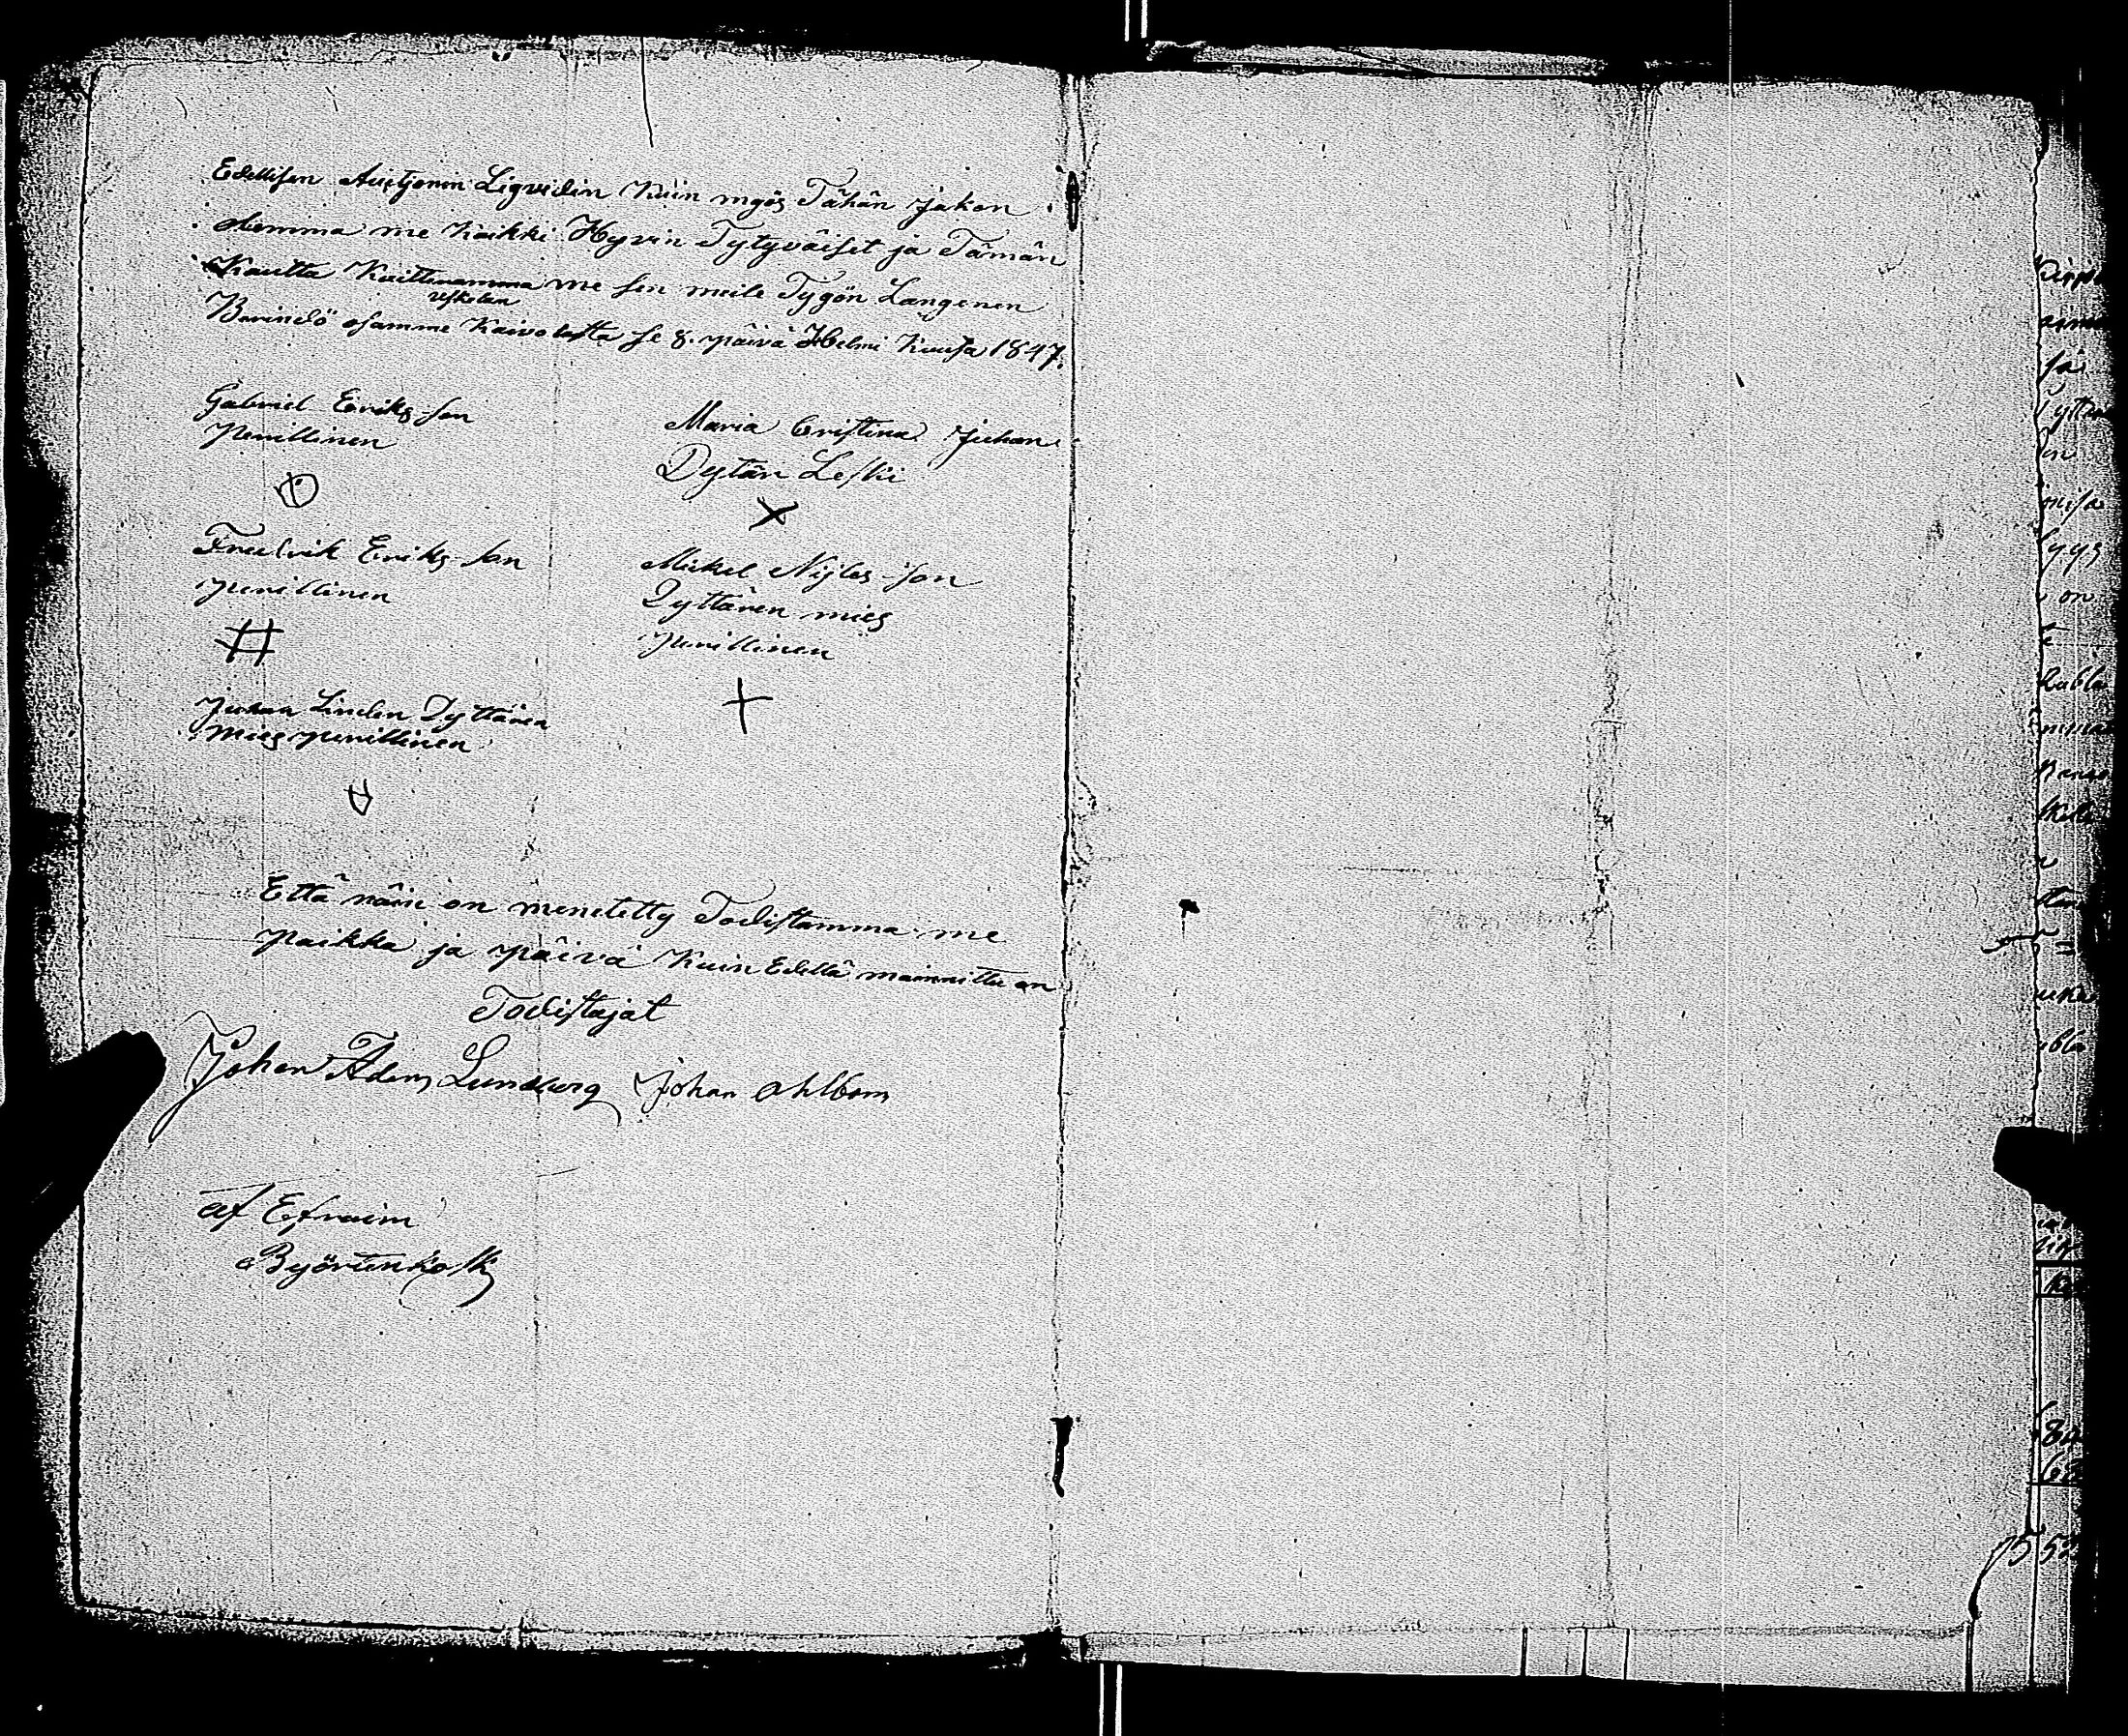 Edellisen Auctjonin Liqvidin Kuin myös Tähän Jakon
olemma me Kaikki Hyvin Tytyväiset ja Tämän
Kautta Kvittenamma me sen meile Tygön Langenen
Perindö osamme Kaivotusta se 8. päivä Helmi Kuusa 1847.
Gabriel Eriks-son
Perillinen
Maria Cristina Juhan
Dytär Leski
Fredrik Eriks-son
perillinen
Mickel Nyles-son
Dyttären mies
perillinen
Juhan Linden Dyttären
mies perillinen
Että näin on menetetty Todistamma me
paikka ja päivä Kuin Edellä mainnittu on
Todistajat
Johan Adam Lundberg Johan Ahlbom
af Efraim
Byörkenkolk